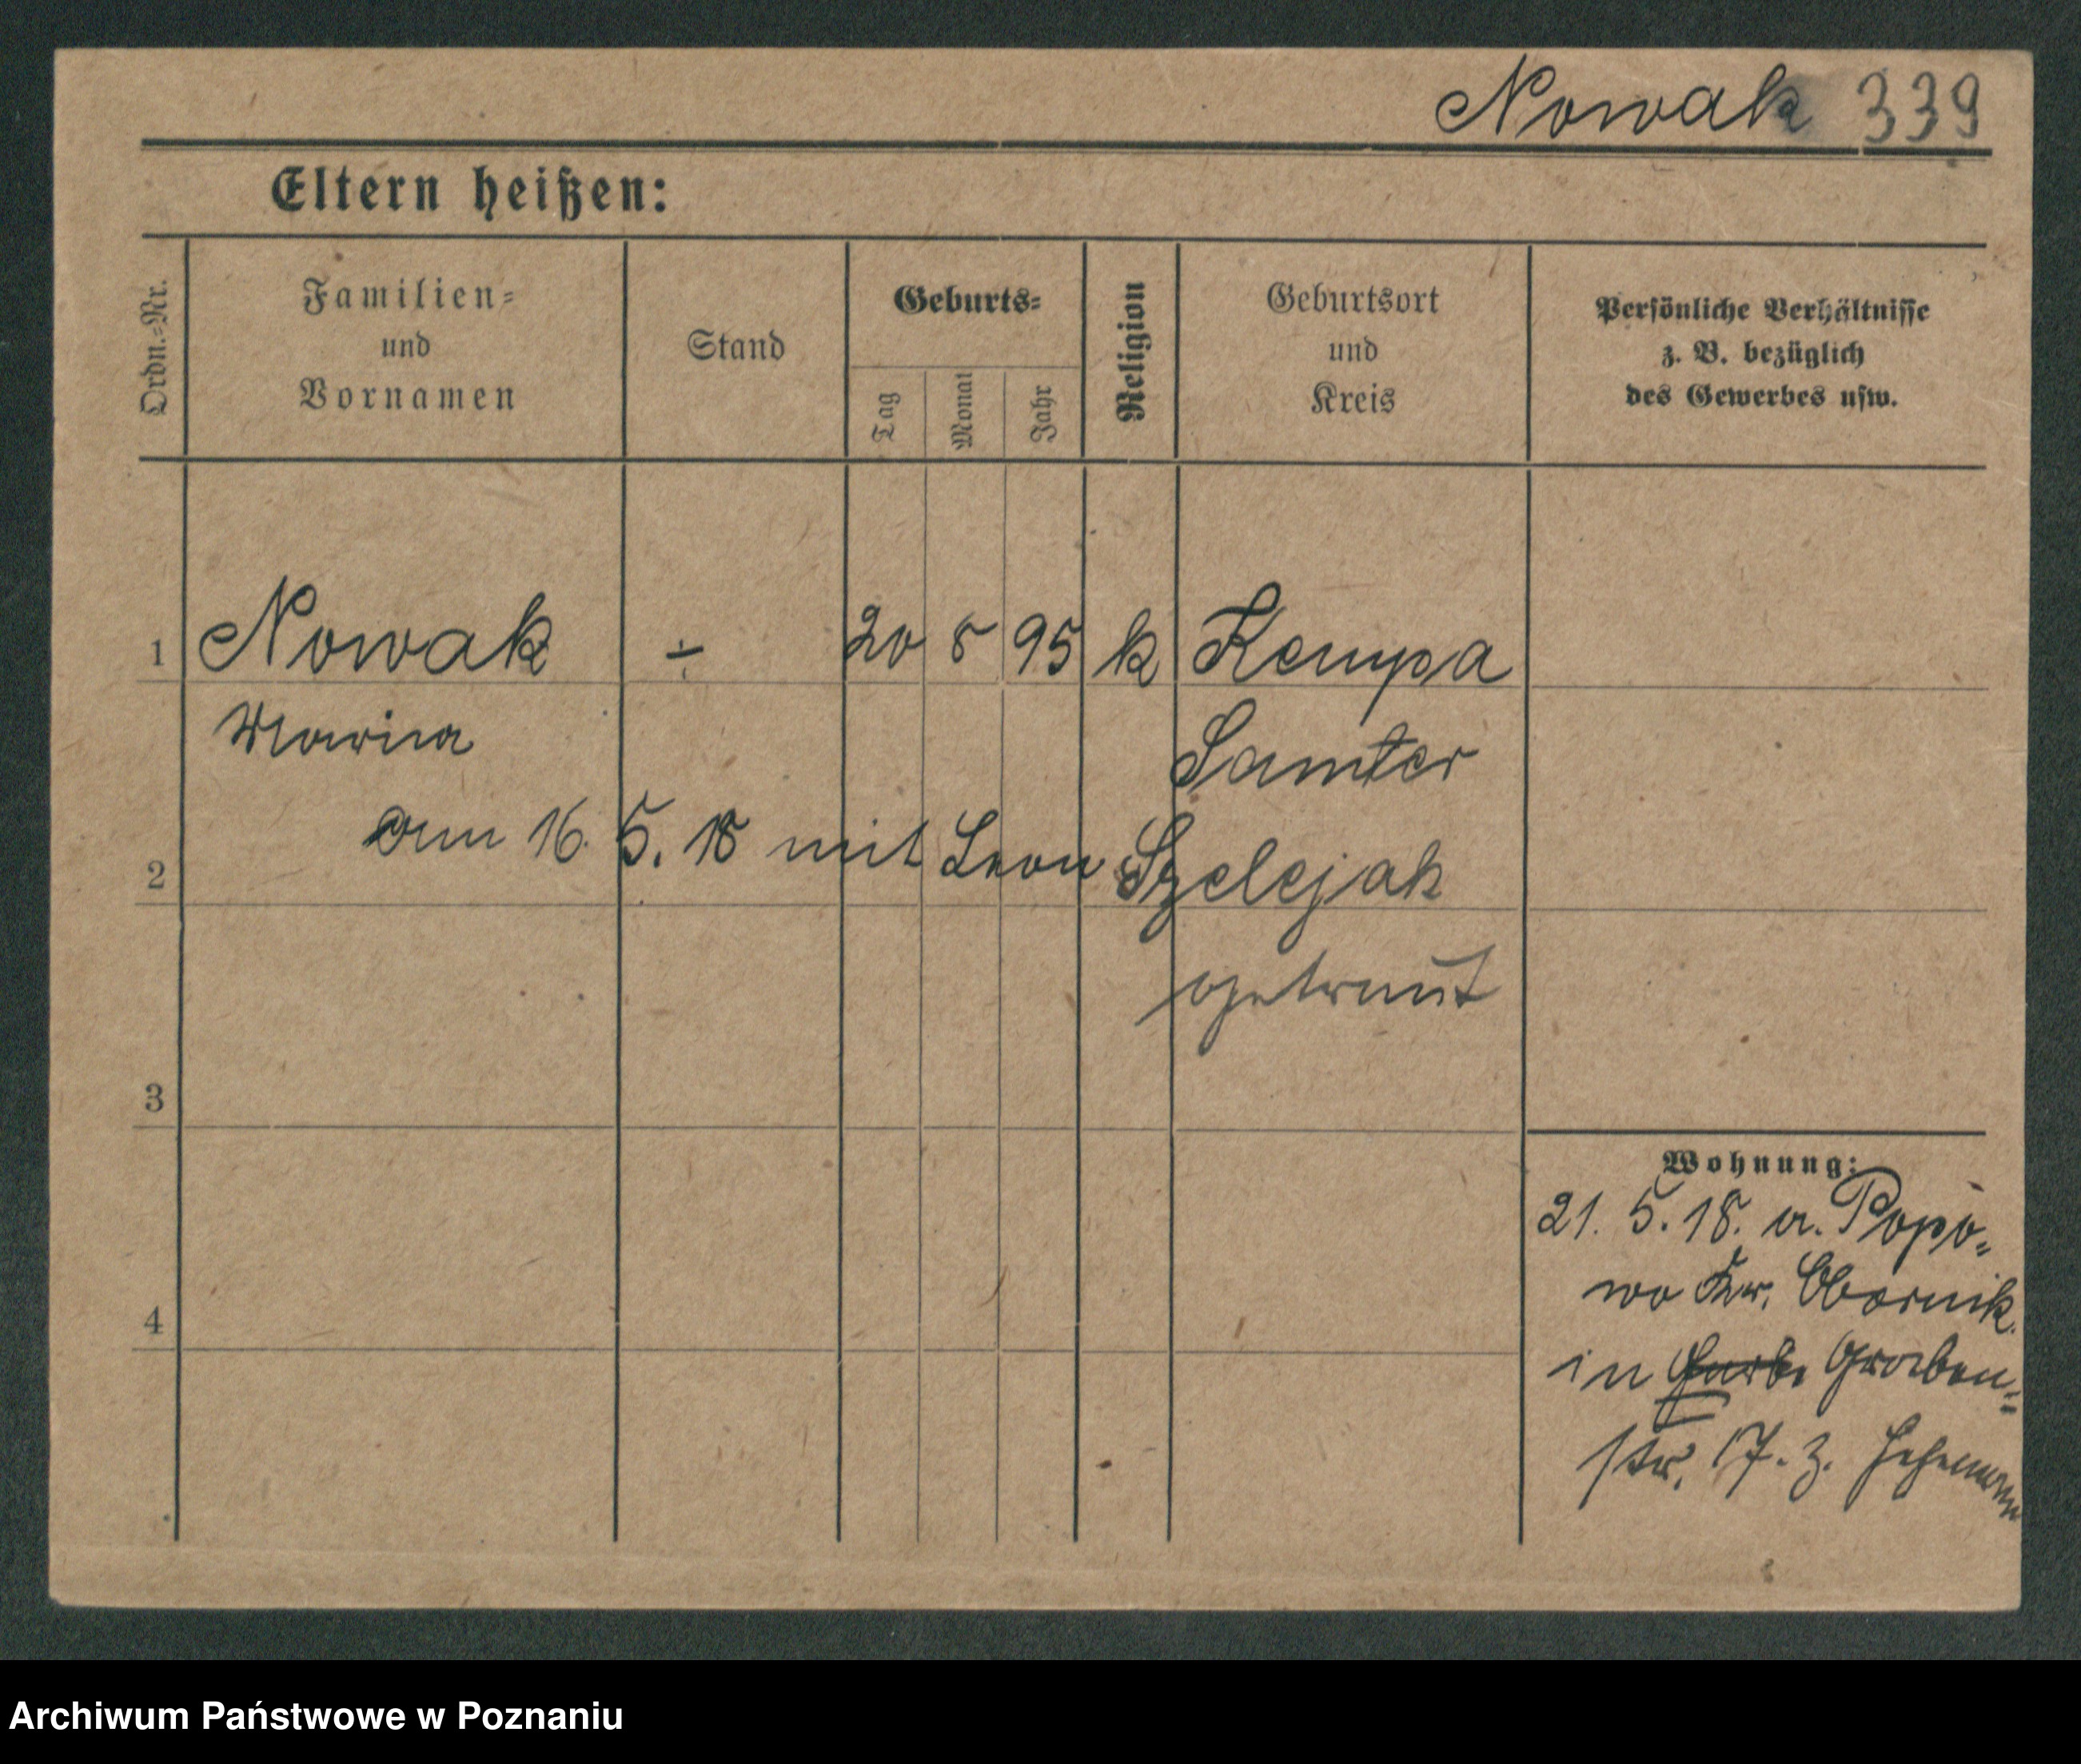 Nowak 339
Eltern heißen:
Ordn.-Nr.
Familien-
und
Vornamen
Stand
Geburts-
Tag
Monat
Jahr
Religion
Geburtsort
und
Kreis
Persönliche Verhältnisse
z. B. bezüglich
des Gewerbes usw.
1 Nowak ÷ 20 8 95 k Kempa
Maria Samter
am 16. 5. 18 mit Leon Szelejak
2
getraut
3
Wohnung:
21. 5. 18. a. Popo-
wo Kr. Obornik.
4
in Graben-
str. 17. z. Hehemann
Archiwum Państwowe w Poznaniu